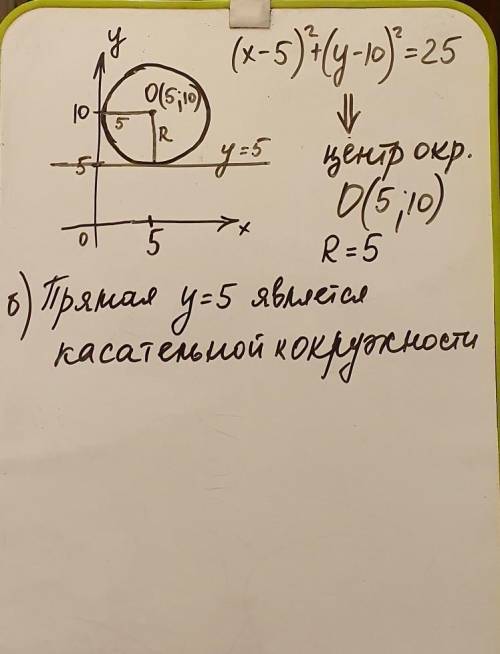 y
(x-5)²+(y-10)²=25
10
O(5;10)
5
R
⇓
5
y=5
центр окр.
O(5;10)
0
5
x
R=5
б) Прямая y=5 является
касательной к окружности